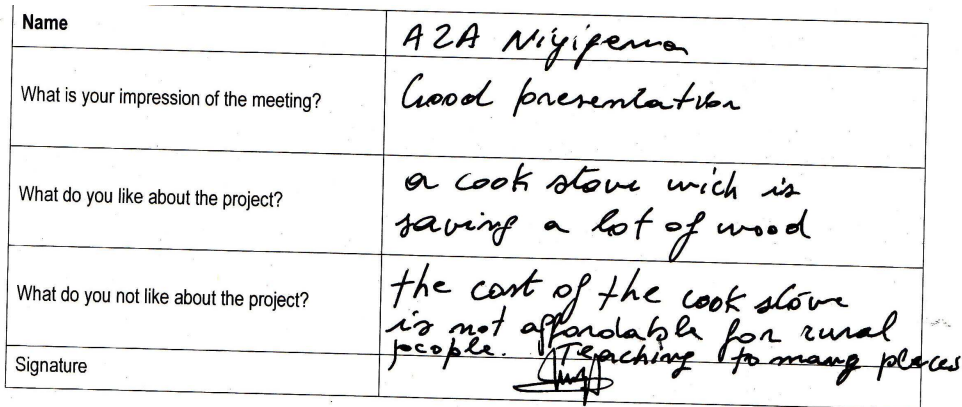 Name
AZA Niyigema
What is your impression of the meeting?
Good presentation
What do you like about the project?
a cook stove wich is
saving a lot of wood
What do you not like about the project?
the cost of the cook stove
is not affordable for rural
people. Teaching to many places
Signature